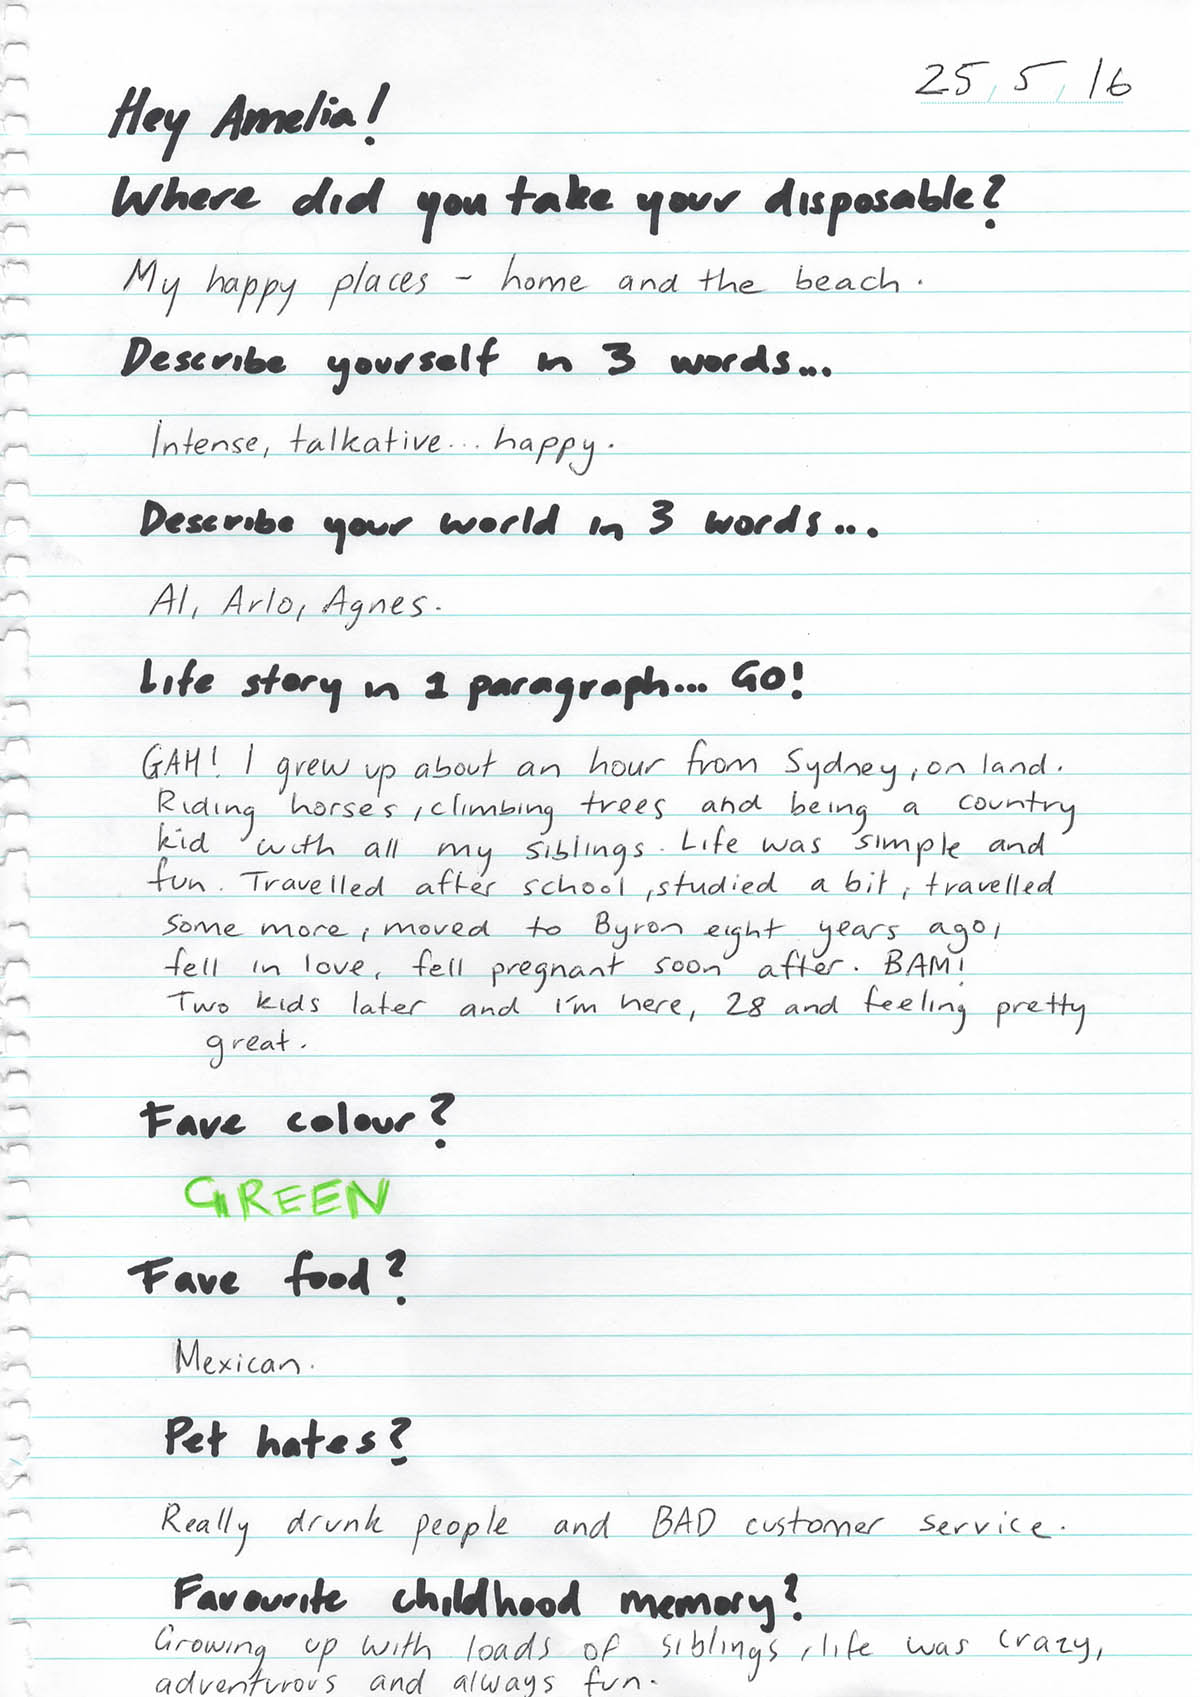 25, 5, 16
Hey Amelia!
Where did you take your disposable?
My happy places - home and the beach.
Describe yourself in 3 words...
Intense, talkative... happy.
Describe your world in 3 words...
Al, Arlo, Agnes.
Life story in 1 paragraph... GO!
GAH! I grew up about an hour from Sydney, on land.
Riding horses, climbing trees and being a country
kid with all my siblings. Life was simple and
fun. Travelled after school, studied a bit, travelled
some more, moved to Byron eight years ago,
fell in love, fell pregnant soon after. BAM!
Two kids later and i'm here, 28 and feeling pretty
great.
Fave colour?
GREEN
Fave food?
Mexican.
Pet hates?
Really drunk people and BAD customer service.
Favourite childhood memory?
Growing up with loads of siblings, life was crazy,
adventurous and always fun.